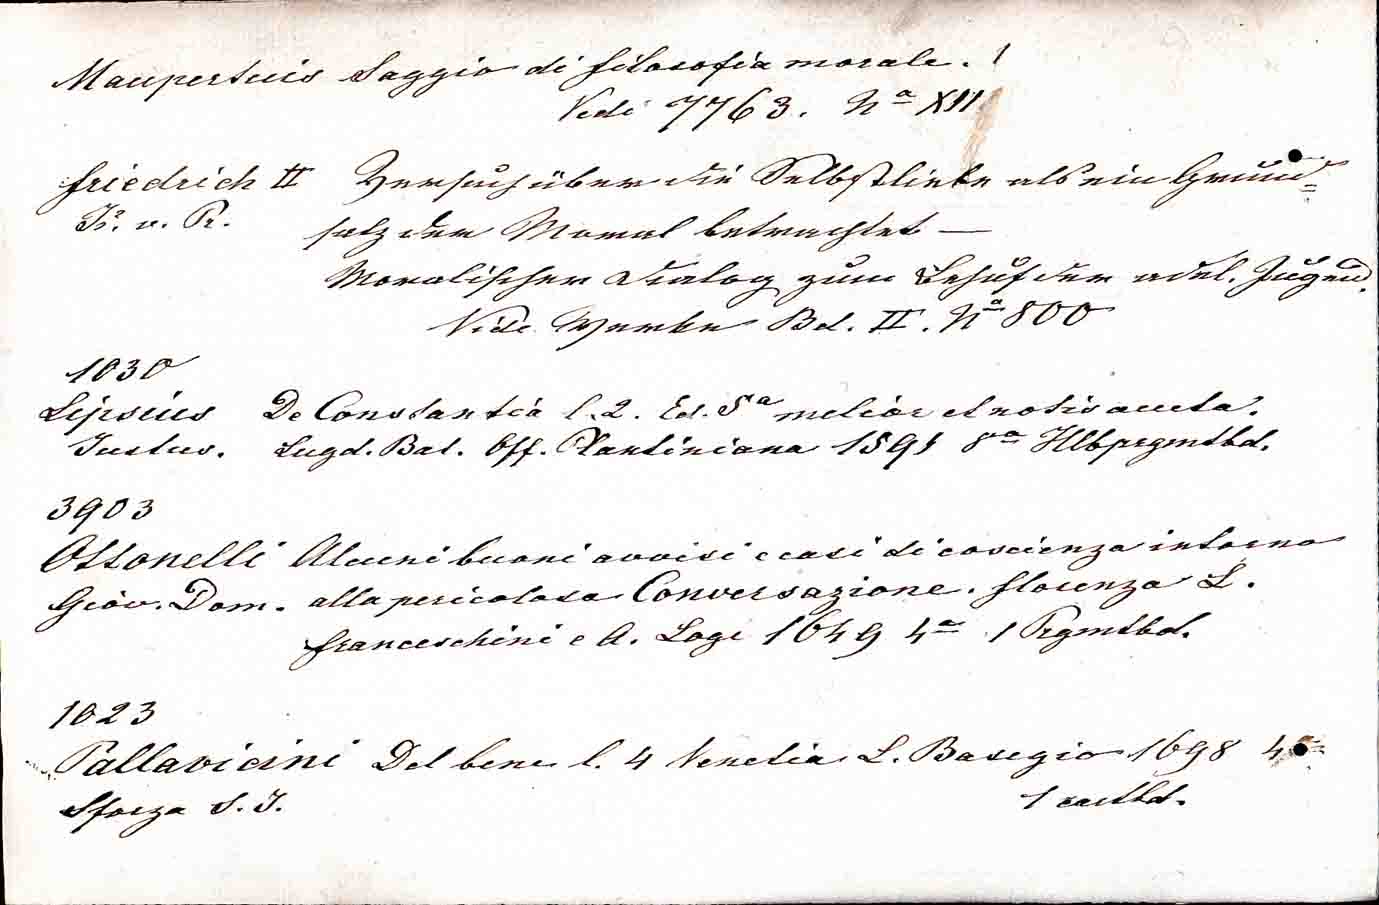 Maupertuis Saggio di filosofia morale. 1
Vedi 7763. Nª XII
Friedrich II Versuch über die Selbstliebe als ein Grund=
K. v. Pr. satz der Moral betrachtet —
Moralischer Dialog zum Behuf der adel. Jugend.
Vide Werke Bd. II. Nª 800
1030
Lipsius De Constantia l. 2. Ed. 5ª melior et notis aucta.
Justus. Lugd. Bat. Off. Plantiniana 1591 8ª Hlbprgmtbd.
3903
Ottonelli Alcuni buoni avvisi e casi di coscienza intorno
Giov. Dom. alla pericolosa Conversazione. Florenza L.
Franceschini e A. Logi 1649 4ª 1 Prgmtbd.
1023
Pallavicini Del bene l. 4 Venetia L. Basegio 1698 4ª
Sforza S. J. 1 cartbd.